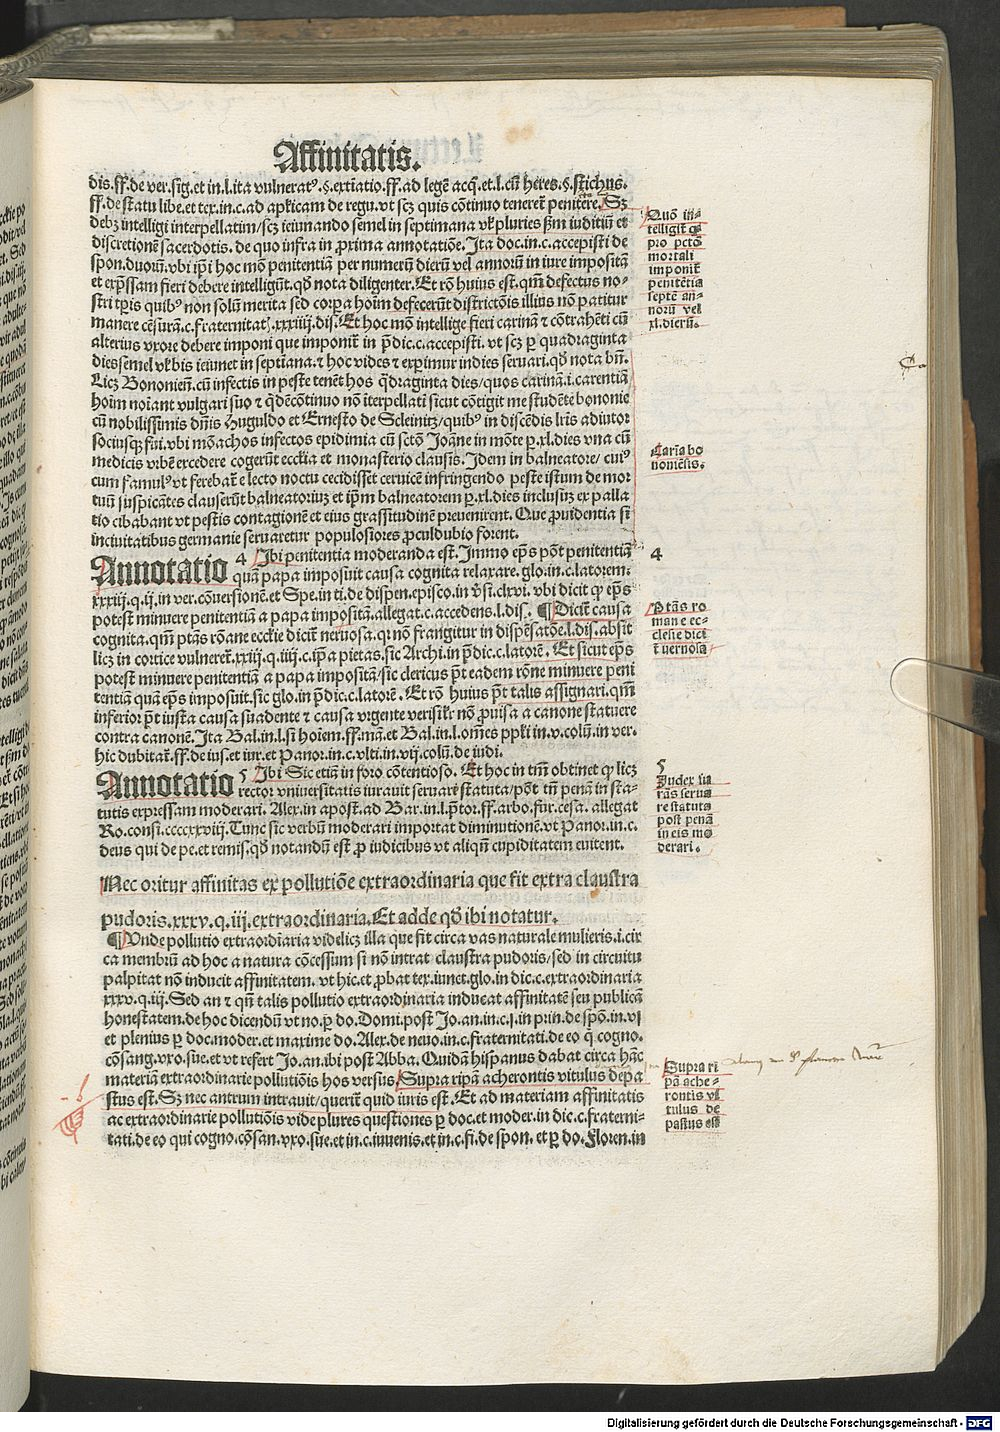 Affinitatis.
dis.ff.de ver.sig.et in.l.ita vulneratꝰ.§.extiatio.ff.ad legē acq̄.et.l.cū heres.§.stichus.
ff.de statu libe.et tex.in.c.ad aplicam de regu.vt scꝫ quis cōtinuo teneret̄ penitēre.Sꝫ
debꝫ intelligi interpellatim/scꝫ ieiunando semel in septimana vl̓ pluries ẜm iuditiū et
discretionē sacerdotis. de quo infra in proxima annotatiōe. Ita doc.in.c.accepisti de
spon.duorū.vbi ip̄i hoc mō penitentiā per numerū dierū vel annorū in iure impositā
et exp̄ssam fieri debere intelligūt.qḋ nota diligenter.Et rō huius est.qm̄ defectus no-
stri tꝑis quibꝰ non solū merita sed corpa hoīm defecerūt districtōis illius nō patitur
manere cēsurā.c.fraternitaꝭ.xxxiiij.dis.Et hoc mō intellige fieri carinā ⁊ cōtrahēti cū
alterius vxore debere imponi que imponit̄ in p̄dic.c.accepisti.vt scꝫ ꝑ quadraginta
dies semel vl̓ bis ieiunet in septīana.⁊ hoc vides ⁊ exp̄imur indies seruari.qḋ nota bn̄.
Licꝫ Bononieñ.cū infectis in peste tenēt hos q̄draginta dies/quos carinā.i.carentiā
hoīm noīant vulgari suo ⁊ q̄dēcōtinuo nō iterpellati sicut cōtigit me studēte bononie
cū nobilissimis dn̄is Huguldo et Ernesto de Scleinitz/quibꝰ in discēdis lr̄is adiutor
sociusqꝫ fui.vbi mōachos infectos epidimia cū sctm̄ Joāne in mōte ꝑ.xl.dies vna cū
medicis vrbē excedere cogerūt ecclia et monasterio clausis.Idem in balneatore/cuiꝰ
cum famulꝰ vt ferebat̄ e lecto noctu cecidisset ceruicē infringendo peste istum de mor
tuū suspicātes clauserūt balneatoriuꝫ et ip̄m balneatorem ꝑ.xl.dies inclusuꝫ ex palla
tio cibabant vt pestis contagionē et eius grassitudinē preuenirent.Que prouidentia si
inciuitatibus germanie seruaretur populosiores proculdubio forent.
Annotatio 4 Ibi penitentia moderanda est.Immo ep̄s pōt penitentiā
quā papa imposuit causa cognita relaxare.glo.in.c.latorem.
xxxiij.q.ij.in ver.cōuersionē.et Spe.in ti.de dispen.episco.in v̓si.clxvi.vbi dicit ꝙ ep̄s
potest minuere penitentiā a papa impositā.allegat.c.accedens.l.dis. ¶Dicit̄ causa
cognita.qm̄ ptās rōane ecclie dicit̄ neruosa.qꝛ nō frangitur in dispēsatōe.l.dis.absit
licꝫ in cortice vulneret̄.xxiij.q.iiij.c.ip̄a pietas.sic Archi.in p̄dic.c.latorē. Et sicut ep̄s
potest minuere penitentiā a papa impositā/sic clericus p̄t eadem rōne minuere peni
tentiā quā ep̄s imposuit.sic glo.in p̄dic.c.latorē.Et rō huius p̄t talis assignari.qm̄
inferior p̄t iusta causa suadente ⁊ causa vrgente verisil̓r nō prouisa a canone statuere
contra canonē.Ita Bal.in.l.si hoīem.ff.man̄.et Bal.in.l.om̄es ppl̓i in.v.colū.in ver.
hic dubitat̄.ff.de ius.et iur.et Panor.in.c.vlti.in.vij.colū.de iudi.
Annotatio 5 Ibi Sic etiā in foro cōtentioso. Et hoc in tm̄ obtinet ꝙ licꝫ
rector vniuersitatis iurauit seruari statuta/pōt tn̄ penā in sta-
tutis expressam moderari. Alex.in apost.ad Bar.in l.p̄tor.ff.arbo.fur.cesa. allegat
Ro.consi.ccccxxviij.Tunc sic verbū moderari importat diminutionē.vt Panor.in.c.
deus qui de pe.et remis.qḋ notandū est pro iudicibus vt aliqn̄ cupiditatem euitent.
Nec oritur affinitas ex pollutiōe extraordinaria que fit extra claustra
pudoris.xxxv.q.iij.extraordinaria.Et adde qḋ ibi notatur.
¶Vnde pollutio extraordīaria videlicꝫ illa que fit circa vas naturale mulieris.i.cir
ca membrū ad hoc a natura cōcessum si nō intrat claustra pudoris/sed in circuitu
palpitat nō inducit affinitatem. vt hic.et probat tex.iunct.glo.in dic.c.extraordinaria
xxxv.q.iij.Sed an ⁊ qn̄ talis pollutio extraordinaria inducat affinitatē seu publicā
honestatem.de hoc dicendū vt no.ꝑ do.Domi.post Jo.an.in.c.j.in prin.de spō.in.vj
et plenius ꝑ doc.moder.et maxime do.Alex.de neuo.in.c.fraternitati.de eo q̇ cogno.
cōsang.vxo.sue.et vt refert Jo.an.ibi post Abba.Quidā hispanus dabat circa hāc
materiā extraordinarie pollutiōis hos versus.Supra ripā acherontis vitulus depa
stus est.Sꝫ nec antrum intrauit/querit̄ quid iuris est.Et ad materiam affinitatis
ac extraordinarie pollutiōis vide plures questiones ꝑ doc.et moder.in dic.c.fraterni-
tati.de eo qui cogno.cōsan.vxo.sue.et in.c.iuuenis.et in.c.fi.de spon. et ꝑ do. Floren.in
Quō in-
telligit̄ ꝙ
pro pctō
mortali
imponit̄
penitētia
septē an-
norū vel
xl.dierū.
Carīa bo
noniēsis.
4
Ptās ro
mane ec-
clesie dici
t̄ neruosa
5
Iudex iu
rās serua
re statuta
post penā
in eis mo
derari.
Supra ri
pā ache-
rontis vi
tulus de
pastus est
Digitalisierung gefördert durch die Deutsche Forschungsgemeinschaft - DFG